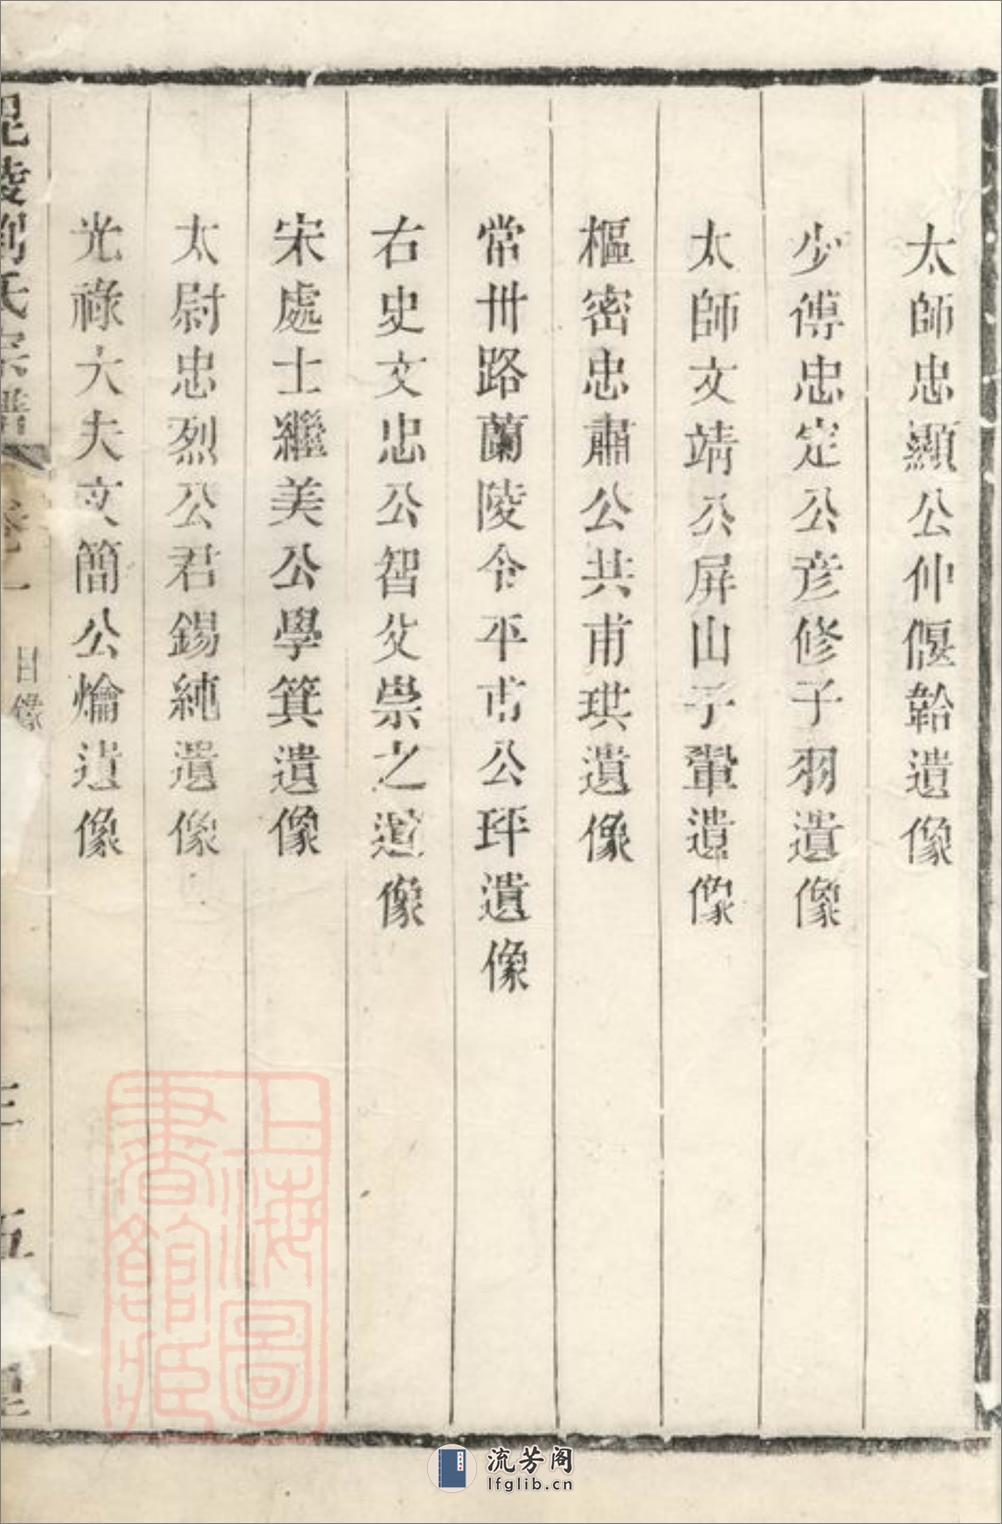 太師忠顯公仲偃韐遺像
少傅忠定公彥修子羽遺像
太師文靖公屏山子翬遺像
樞密忠肅公共甫珙遺像
常州路蘭陵令平甫公玶遺像
右史文忠公智父崇之遺像
宋處士繼美公學箕遺像
太尉忠烈公君錫純遺像
光祿大夫文簡公爚遺像
毘陵劉氏宗譜
卷一
目像
三
五
上海圖書館藏
流芳阁
lfglib.cn